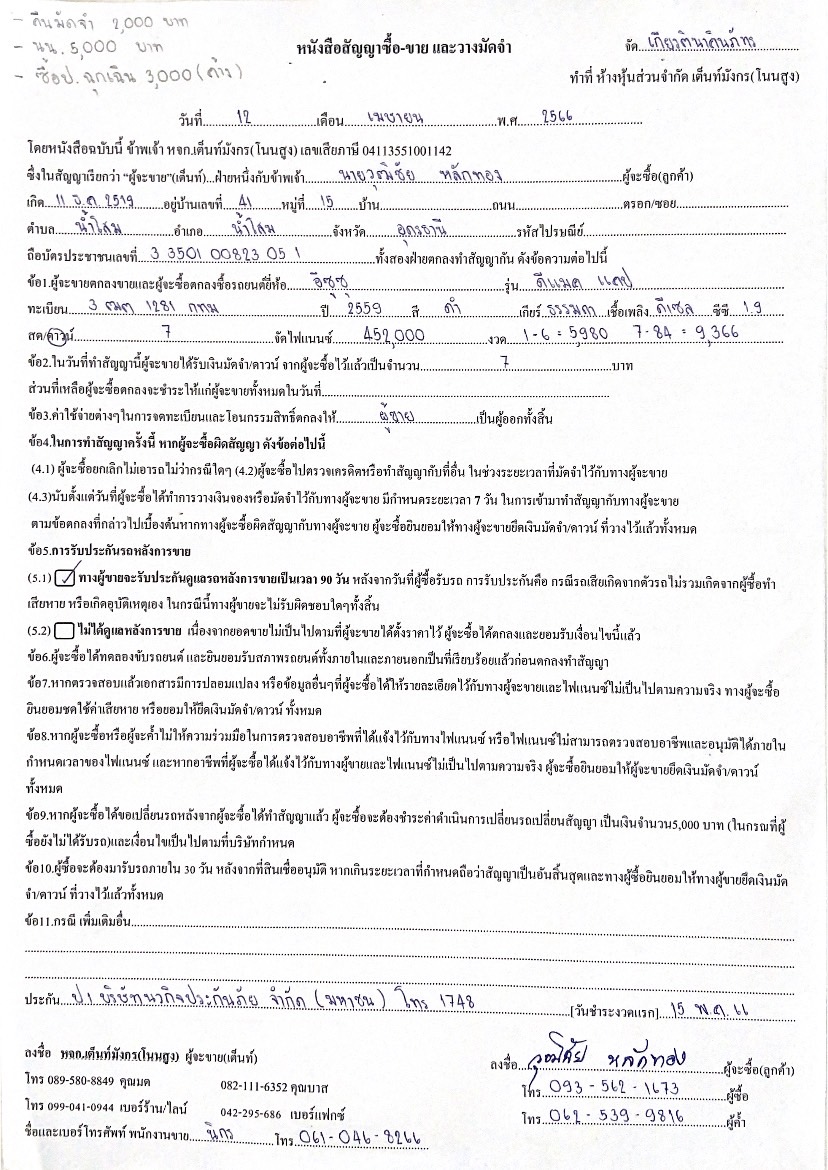 - คืนมัดจำ 2,000 บาท
- นน. 5,000 บาท
- ซื้อป. ฉุกเฉิน 3,000 (ค้าง)
หนังสือสัญญาซื้อ-ขาย และวางมัดจำ
จัด...เกียรตินาคินภัทร
ทำที่ ห้างหุ้นส่วนจำกัด เต็นท์มังกร(โนนสูง)
วันที่......12......เดือน......เมษายน......พ.ศ......2566......
โดยหนังสือฉบับนี้ ข้าพเจ้า หจก.เต็นท์มังกร(โนนสูง) เลขเสียภาษี 04113551001142
ซึ่งในสัญญาเรียกว่า "ผู้จะขาย"(เต็นท์)...ฝ่ายหนึ่งกับข้าพเจ้า......นายวุฒิชัย หลักทอง......ผู้จะซื้อ(ลูกค้า)
เกิด...11 ธ.ค. 2519...อยู่บ้านเลขที่...41...หมู่ที่...15...บ้าน......ถนน......ตรอก/ซอย......
ตำบล...น้ำโสม...อำเภอ...น้ำโสม...จังหวัด...อุดรธานี...รหัสไปรษณีย์......
ถือบัตรประชาชนเลขที่...3 3501 00823 05 1...ทั้งสองฝ่ายตกลงทำสัญญากัน ดังข้อความต่อไปนี้
ข้อ1.ผู้จะขายตกลงขายและผู้จะซื้อตกลงซื้อรถยนต์ยี่ห้อ......อีซูซุ......รุ่น......ดีแมค แคป......
ทะเบียน...3 ฒฒ 1281 กทม...ปี...2559...สี...ดำ...เกียร์...ธรรมดา...เชื้อเพลิง...ดีเซล...ซีซี...1.9
สด/ดาวน์......7......จัดไฟแนนซ์......452,000......งวด...1-6 = 5,980 7-84 = 9,366
ข้อ2.ในวันที่ทำสัญญานี้ผู้จะขายได้รับเงินมัดจำ/ดาวน์ จากผู้จะซื้อไว้แล้วเป็นจำนวน......7......บาท
ส่วนที่เหลือผู้จะซื้อตกลงจะชำระให้แก่ผู้จะขายทั้งหมดในวันที่......
ข้อ3.ค่าใช้จ่ายต่างๆในการจดทะเบียนและโอนกรรมสิทธิ์ตกลงให้......ผู้ขาย......เป็นผู้ออกทั้งสิ้น
ข้อ4.ในการทำสัญญาครั้งนี้ หากผู้จะซื้อผิดสัญญา ดังข้อต่อไปนี้
(4.1) ผู้จะซื้อยกเลิกไม่เอารถไม่ว่ากรณีใดๆ (4.2)ผู้จะซื้อไปตรวจเครดิตหรือทำสัญญากับที่อื่น ในช่วงระยะเวลาที่มัดจำไว้กับทางผู้จะขาย
(4.3)นับตั้งแต่วันที่ผู้จะซื้อได้ทำการวางเงินจองหรือมัดจำไว้กับทางผู้จะขาย มีกำหนดระยะเวลา 7 วัน ในการเข้ามาทำสัญญากับทางผู้จะขาย
ตามข้อตกลงที่กล่าวไปเบื้องต้นหากทางผู้จะซื้อผิดสัญญากับทางผู้จะขาย ผู้จะซื้อยินยอมให้ทางผู้จะขายยึดเงินมัดจำ/ดาวน์ ที่วางไว้แล้วทั้งหมด
ข้อ5.การรับประกันรถหลังการขาย
(5.1) ☑ ทางผู้ขายจะรับประกันดูแลรถหลังการขายเป็นเวลา 90 วัน หลังจากวันที่ผู้ซื้อรับรถ การรับประกันคือ กรณีรถเสียเกิดจากตัวรถไม่รวมเกิดจากผู้ซื้อทำ
เสียหาย หรือเกิดอุบัติเหตุเอง ในกรณีนี้ทางผู้ขายจะไม่รับผิดชอบใดๆทั้งสิ้น
(5.2) ☐ ไม่ได้ดูแลหลังการขาย เนื่องจากยอดขายไม่เป็นไปตามที่ผู้จะขายได้ตั้งราคาไว้ ผู้จะซื้อได้ตกลงและยอมรับเงื่อนไขนี้แล้ว
ข้อ6.ผู้จะซื้อได้ทดลองขับรถยนต์ และยินยอมรับสภาพรถยนต์ทั้งภายในและภายนอกเป็นที่เรียบร้อยแล้วก่อนตกลงทำสัญญา
ข้อ7.หากตรวจสอบแล้วเอกสารมีการปลอมแปลง หรือข้อมูลอื่นๆที่ผู้จะซื้อได้ให้รายละเอียดไว้กับทางผู้จะขายและไฟแนนซ์ไม่เป็นไปตามความจริง ทางผู้จะซื้อ
ยินยอมชดใช้ค่าเสียหาย หรือยอมให้ยึดเงินมัดจำ/ดาวน์ ทั้งหมด
ข้อ8.หากผู้จะซื้อหรือผู้จะค้ำไม่ให้ความร่วมมือในการตรวจสอบอาชีพที่ได้แจ้งไว้กับทางไฟแนนซ์ หรือไฟแนนซ์ไม่สามารถตรวจสอบอาชีพและอนุมัติได้ภายใน
กำหนดเวลาของไฟแนนซ์ และหากอาชีพที่ผู้จะซื้อได้แจ้งไว้กับทางผู้ขายและไฟแนนซ์ไม่เป็นไปตามความจริง ผู้จะซื้อยินยอมให้ผู้จะขายยึดเงินมัดจำ/ดาวน์
ทั้งหมด
ข้อ9.หากผู้จะซื้อได้ขอเปลี่ยนรถหลังจากผู้จะซื้อได้ทำสัญญาแล้ว ผู้จะซื้อจะต้องชำระค่าดำเนินการเปลี่ยนรถเปลี่ยนสัญญา เป็นเงินจำนวน5,000 บาท (ในกรณที่ผู้
ซื้อยังไม่ได้รับรถ)และเงื่อนไขเป็นไปตามที่บริษัทกำหนด
ข้อ10.ผู้ซื้อจะต้องมารับรถภายใน 30 วัน หลังจากที่สินเชื่ออนุมัติ หากเกินระยะเวลาที่กำหนดถือว่าสัญญาเป็นอันสิ้นสุดและทางผู้ซื้อยินยอมให้ทางผู้ขายยึดเงินมัด
จำ/ดาวน์ ที่วางไว้แล้วทั้งหมด
ข้อ11.กรณี เพิ่มเติมอื่น......
ประกัน...ป1 บริษัทนวกิจประกันภัย จำกัด (มหาชน) โทร 1748......[วันชำระงวดแรก]...15 พ.ค. 66
ลงชื่อ หจก.เต็นท์มังกร(โนนสูง) ผู้จะขาย(เต็นท์)
ลงชื่อ...วุฒิชัย หลักทอง...ผู้จะซื้อ(ลูกค้า)
โทร 089-580-8849 คุณมด 082-111-6352 คุณบาส
โทร...093-562-1673...ผู้ซื้อ
โทร 099-041-0944 เบอร์ร้าน/ไลน์ 042-295-686 เบอร์แฟกซ์
โทร...062-539-9816...ผู้ค้ำ
ชื่อและเบอร์โทรศัพท์ พนักงานขาย...นิกร...โทร...061-046-8266